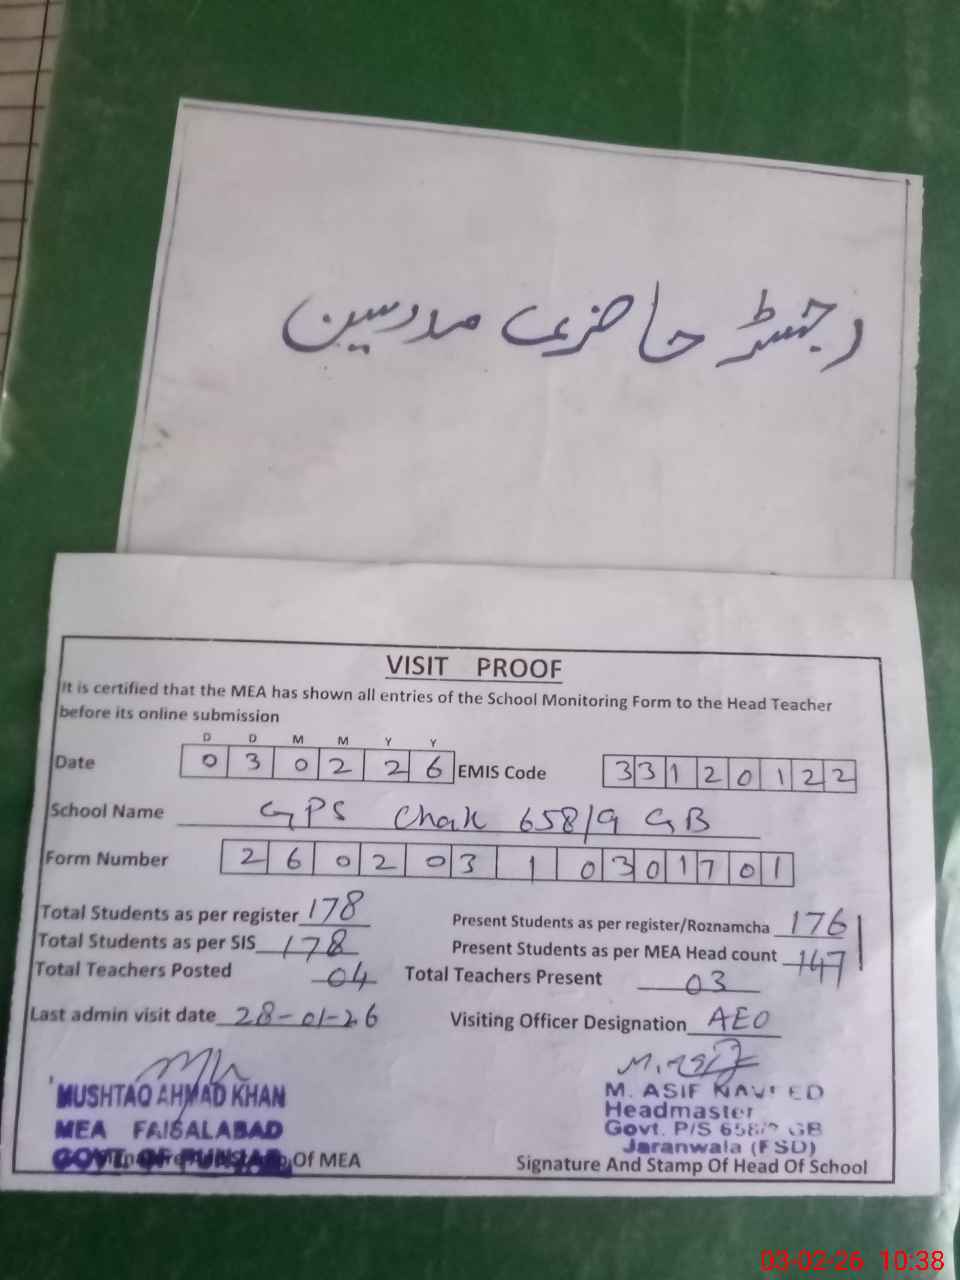 رجسٹر حاضری مدرسین
VISIT PROOF
It is certified that the MEA has shown all entries of the School Monitoring Form to the Head Teacher
before its online submission
D D M M Y Y
Date 0 3 0 2 2 6 EMIS Code 3 3 1 2 0 1 2 2
School Name GPS Chak 658/9 GB
Form Number 2 6 0 2 0 3 1 0 3 0 1 7 0 1
Total Students as per register 178 Present Students as per register/Roznamcha 176
Total Students as per SIS 178 Present Students as per MEA Head count 147
Total Teachers Posted 04 Total Teachers Present 03
Last admin visit date 28-01-26 Visiting Officer Designation AEO
MUSHTAQ AHMAD KHAN
MEA FAISALABAD
GOVT. OF PUNJAB
Of MEA
M. ASIF NAVEED
Headmaster
Govt. P/S 658/9 GB
Jaranwala (FSD)
Signature And Stamp Of Head Of School
03-02-26 10:38